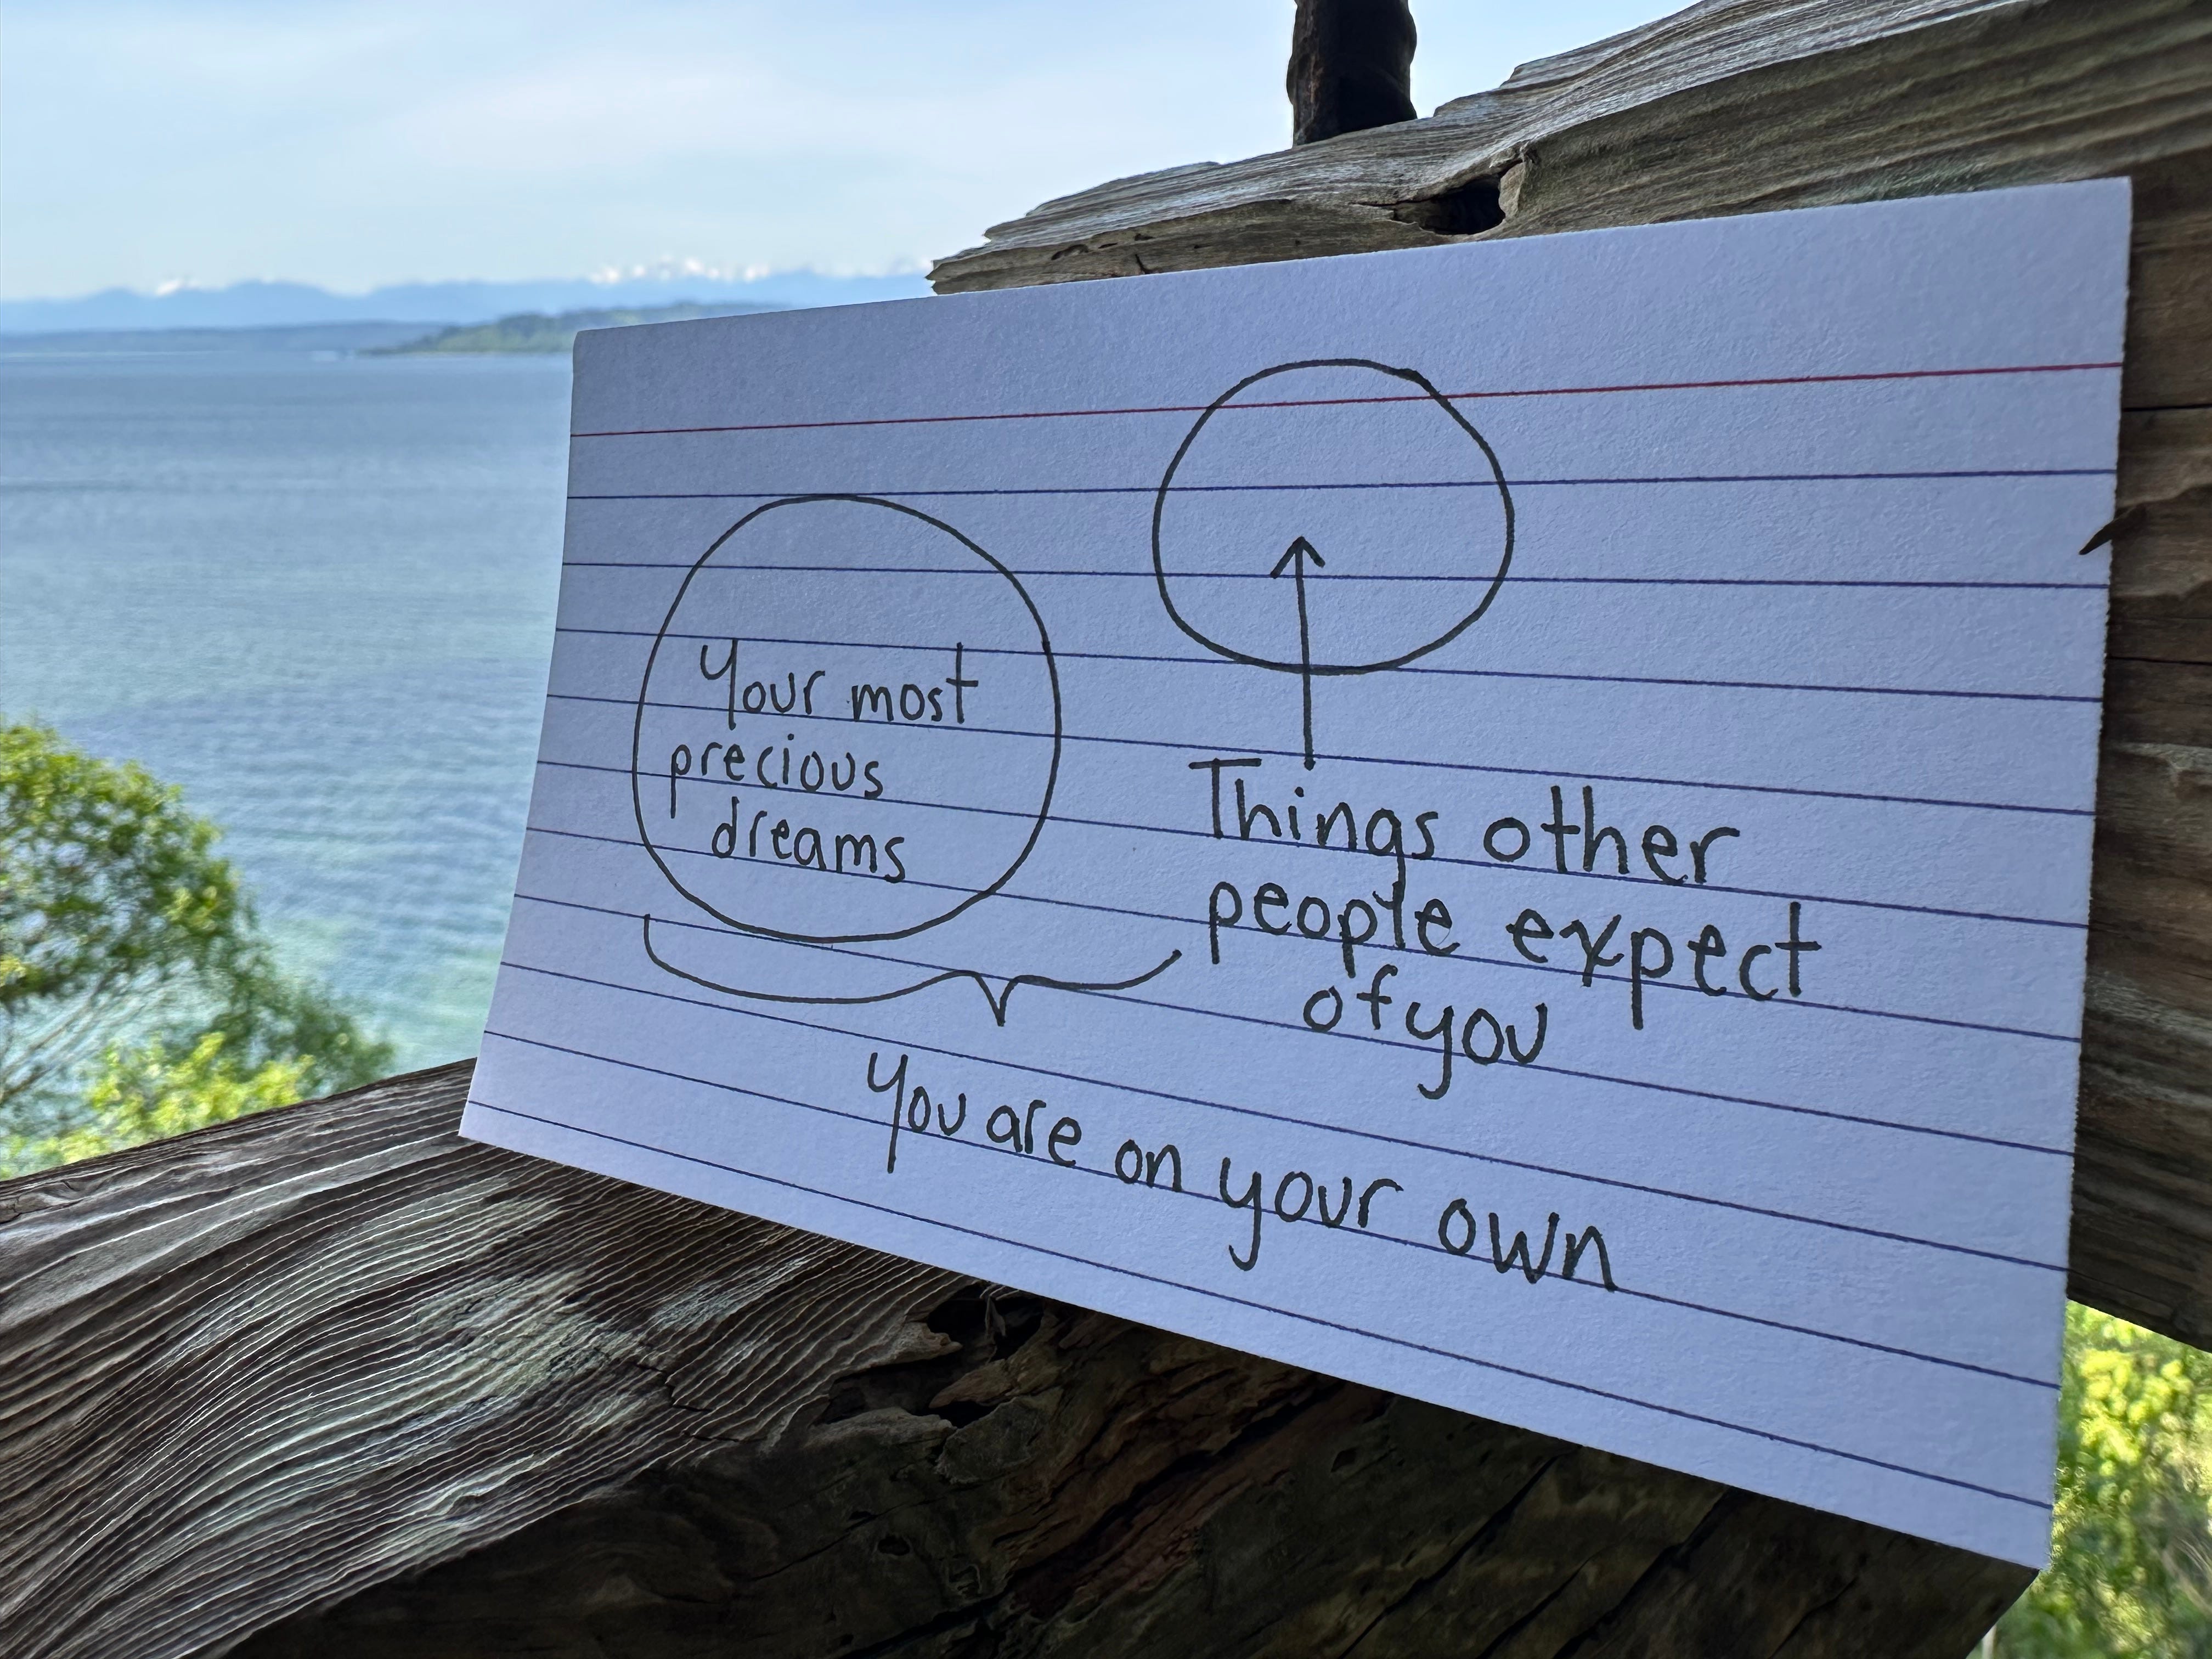 Your most
precious
dreams
Things other
people expect
of you
You are on your own